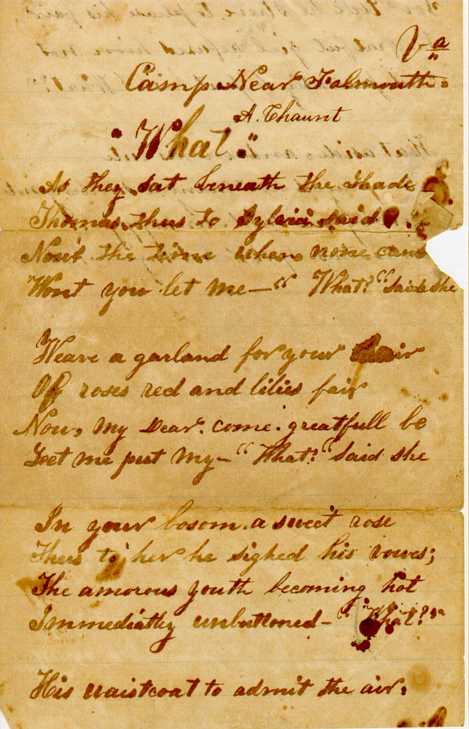 Va
Camp Near Falmouth
A. Chaunt
"What"
As they sat beneath the shade
Thomas thus to Sylvia said
Now's the time when none can
Wont you let me — "What?" said she
Weave a garland for your hair
Of roses red and lilies fair
Now, my Dear. come. greatfull be
Let me put my — "What?" said she
In your bosom. a sweet rose
Thus to her he sighed his vows;
The amorous youth becoming hot
Immediatly unbuttoned — "What?"
His waistcoat to admit the air.